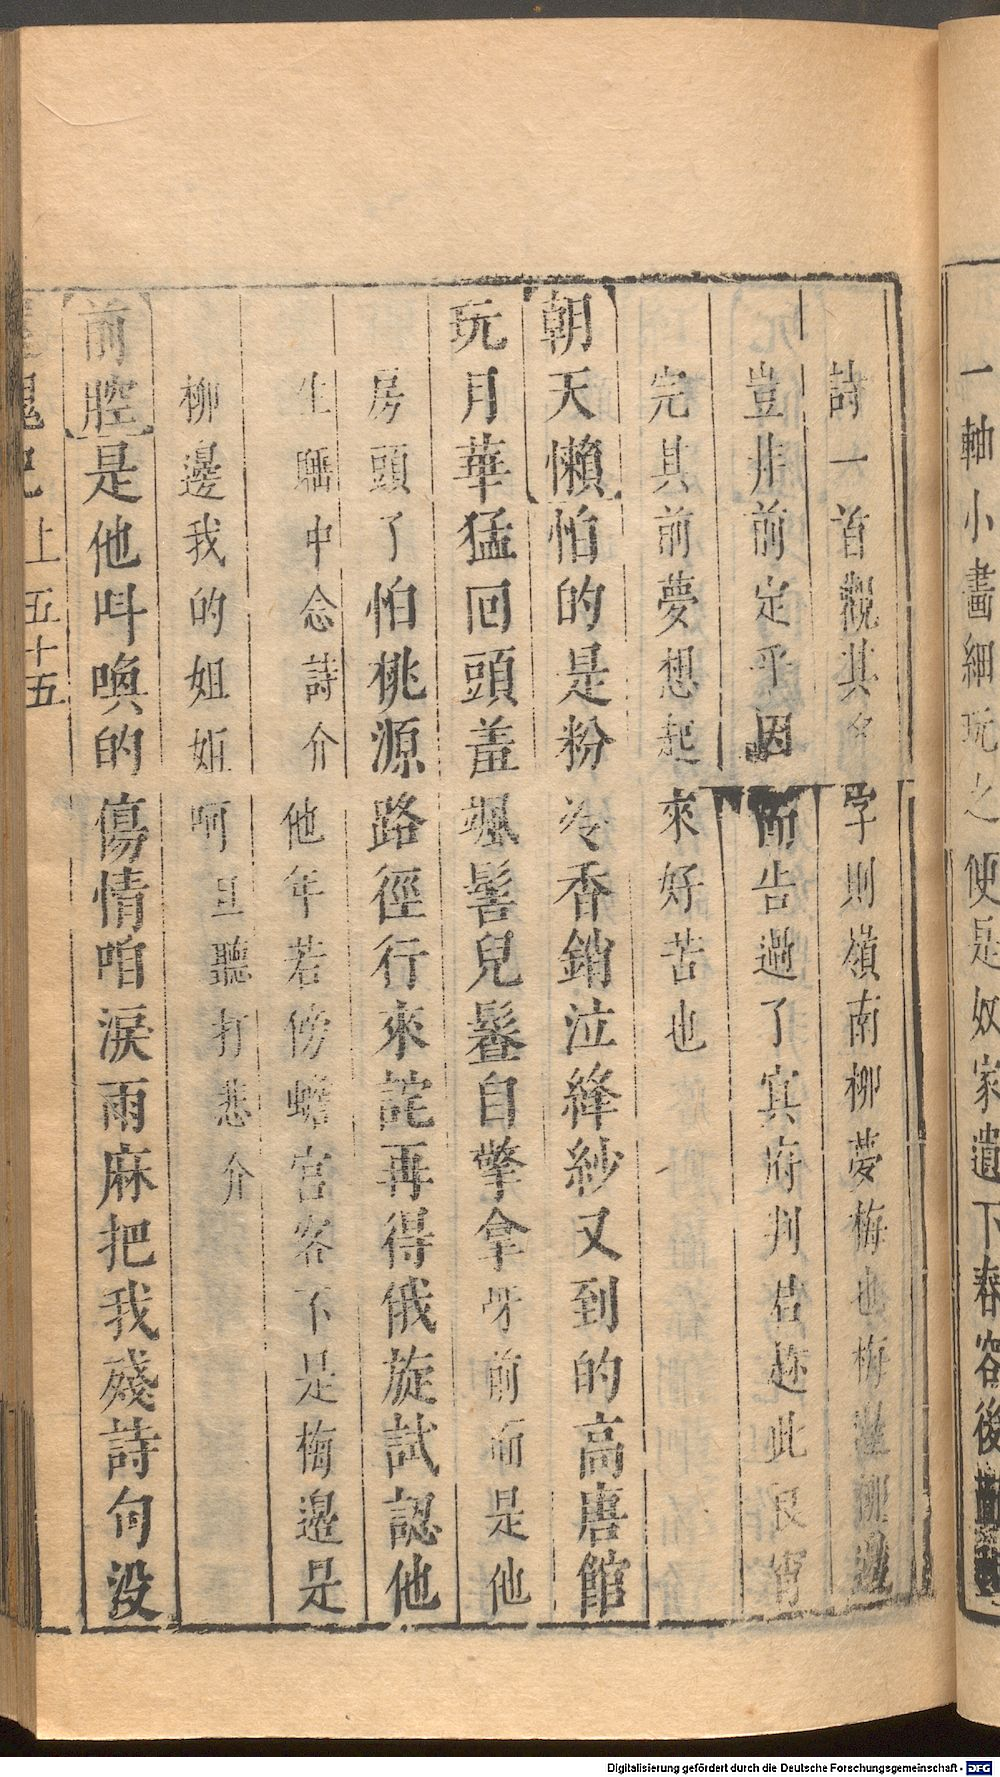 一軸小畫細玩之便是奴家遺下春容後
詩一首觀其名字則嶺南柳夢梅也梅邊柳邊
豈非前定乎因而告過了冥府判君趂此良宵
完其前夢想起來好苦也
【朝天懶】怕的是粉冷香銷泣絳紗又到的高唐館
玩月華猛回頭羞颯髻兒鬖自擎拿呀前面是他
房頭了怕桃源路徑行來詫再得俄旋試認他
生睡中念詩介他年若傍蟾宮客不是梅邊是
柳邊我的姐姐呵旦聽打悲介
【前腔】是他叫喚的傷情咱淚雨麻把我殘詩句没
還魂記上五十五
Digitalisierung gefördert durch die Deutsche Forschungsgemeinschaft - DFG